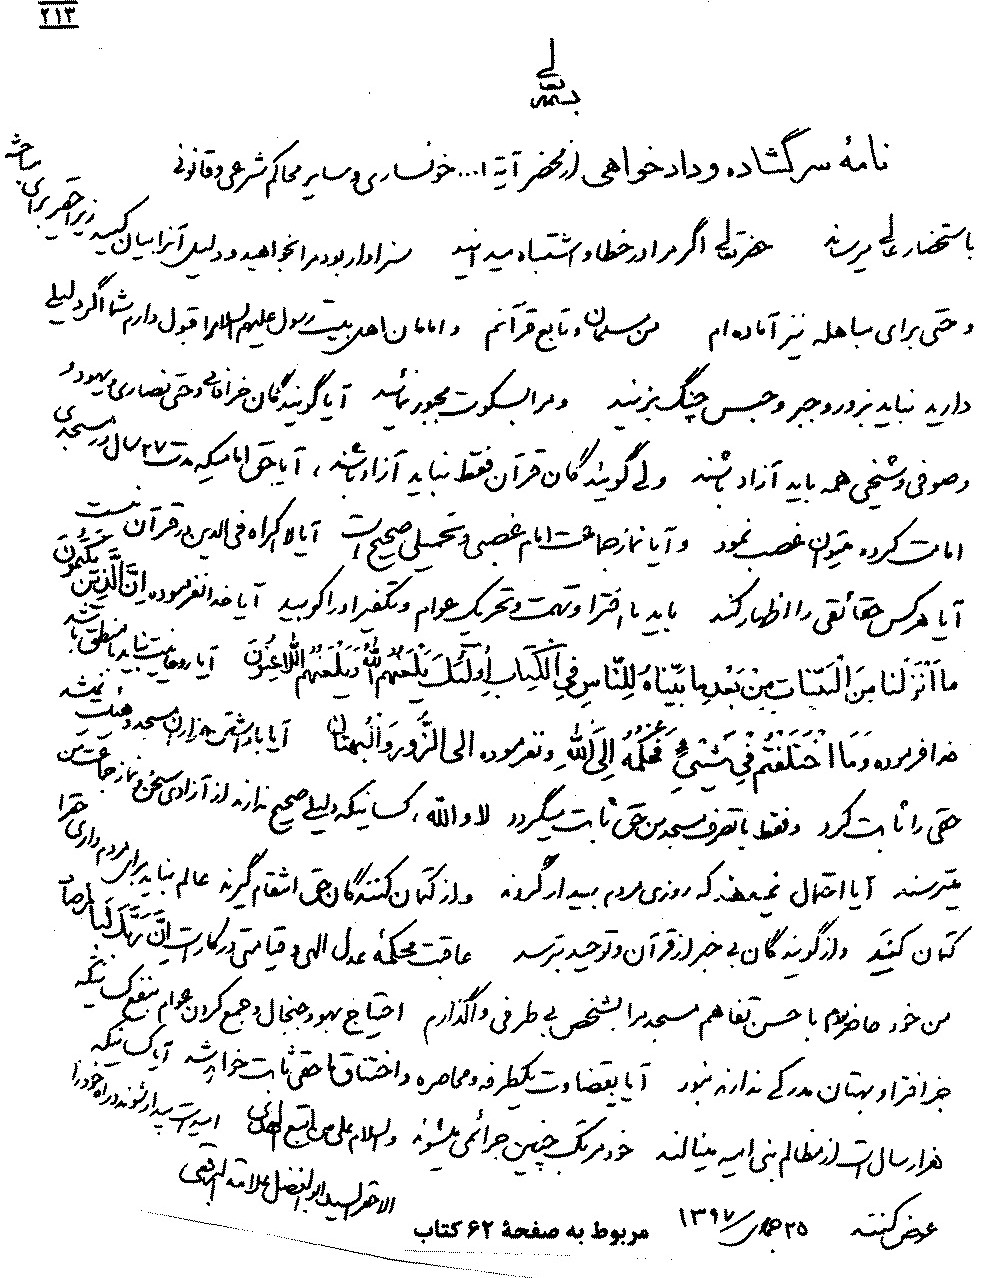 ۲۱۳
بسمه تعالی
نامهٔ سرگشاده و دادخواهی از محضر آیة ا... خونساری و سایر محاکم شرعی و قانونی
باستحضار عالی میرساند حضرتعالی اگر مرا در خطا و اشتباه میدانید سزاوار بود مرا بخواهید و دلیل آنرا بیان کنید زیرا حقیر برای مباحثه
و حتی برای مباهله نیز آماده ام من مسلمان و تابع قرآنم و امامان اهل بیت رسول علیهم السلام را قبول دارم شما اگر دلیلی
دارید نباید بزور و جبر و حبس چنگ بزنید و مرا بسکوت مجبور نمائید آیا گویندگان خرافاتی و حتی نصاری و یهود و
و صوفی و شیخی همه باید آزاد باشند ولی گویندگان قرآن فقط نباید آزاد باشند، آیا حق امامیکه مدت ۲۷ سال در مسجدی
امامت کرده میتوان غصب نمود و آیا نماز جماعت امام غصبی و تحمیلی صحیح است آیا لا اکراه فی الدین در قرآن نیست
آیا هر کس حقائقی را اظهار کند باید با افترا و تهمت و تحریک عوام و تکفیر او را کوبید آیا خدا نفرموده اِنَّ الَّذِینَ یَکْتُمُونَ
ما اَنْزَلْنا مِنَ الْبَیِّناتِ مِنْ بَعْدِ ما بَیَّنّاهُ لِلنّاسِ فِی الْکِتابِ اُولٰئِکَ یَلْعَنُهُمُ اللّٰهُ وَ یَلْعَنُهُمُ اللّاعِنُونَ آیا روحانیت نباید با منطق باشد
خدا فرموده وَ مَا اخْتَلَفْتُمْ فِی شَیْئٍ فَحُکْمُهُ اِلَی اللّٰهِ و نفرموده الی الزُّورِ وَ الْبُهتان آیا با داشتن هزاران مسجد و هیئت نمیشد
حقی را ثابت کرد و فقط با تصرف مسجد من حق ثابت میگردد لا والله، کسانیکه دلیل صحیح ندارند از آزادی سخن و نماز جماعت من
میترسند آیا احتمال نمیدهند که روزی مردم بیدار گردند و از کتمان کنندگان حق انتقام گیرند عالم نباید برای مردم داری حق را
کتمان کنید و از گویندگان بی خبر از قرآن و توحید بترسد عاقبت محکمهٔ عدل الهی و قیامتی در کار است اِنَّ رَبَّکَ لَبِالْمِرْصاد
من خود حاضر بودم با حسن تفاهم مسجد را بشخص بی طرفی واگذارم احتیاج بهو و جنجال و جمع کردن عوام بنفع کسانیکه
جز افترا و بهتان مدرکی ندارند نبود آیا بقضاوت یکطرفه و محاصره و اختناق ما حقی ثابت خواهد شد آیا کسانیکه
هزار سال است از مظالم بنی امیه مینالند خود مرتکب چنین جرائمی میشوند والسلام علی من اتبع الهدی امید است بیدار شوند و راه خود را
عوض کنند ۲۵ جمادی ۱۳۹۷ الاحقر السید ابوالفضل علامه البرقعی
مربوط به صفحهٔ ۶۲ کتاب